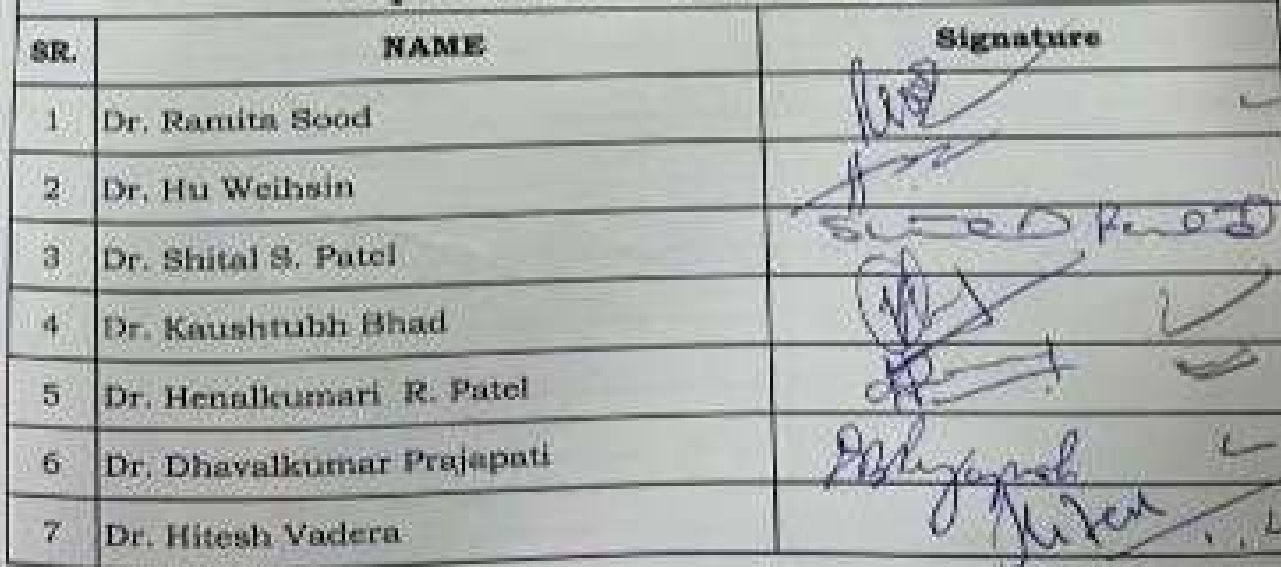 SR. NAME Signature
1 Dr. Ramita Sood
2 Dr. Hu Weihsin
3 Dr. Shital S. Patel
4 Dr. Kaushtubh Bhad
5 Dr. Henalkumari R. Patel
6 Dr. Dhavalkumar Prajapati
7 Dr. Hitesh Vadera